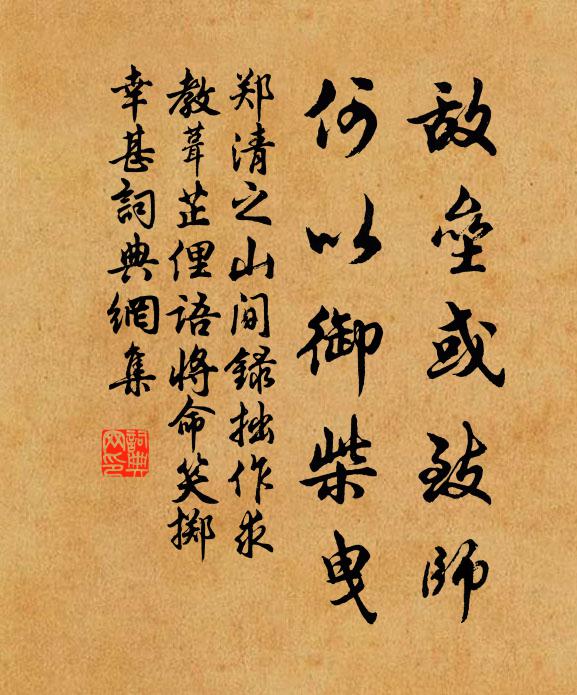 敌垒或致师
何以御柴曳
郑清之山间录拙作求
教葺芷俚语将命笑掷
幸甚詞典網集
詞典网印